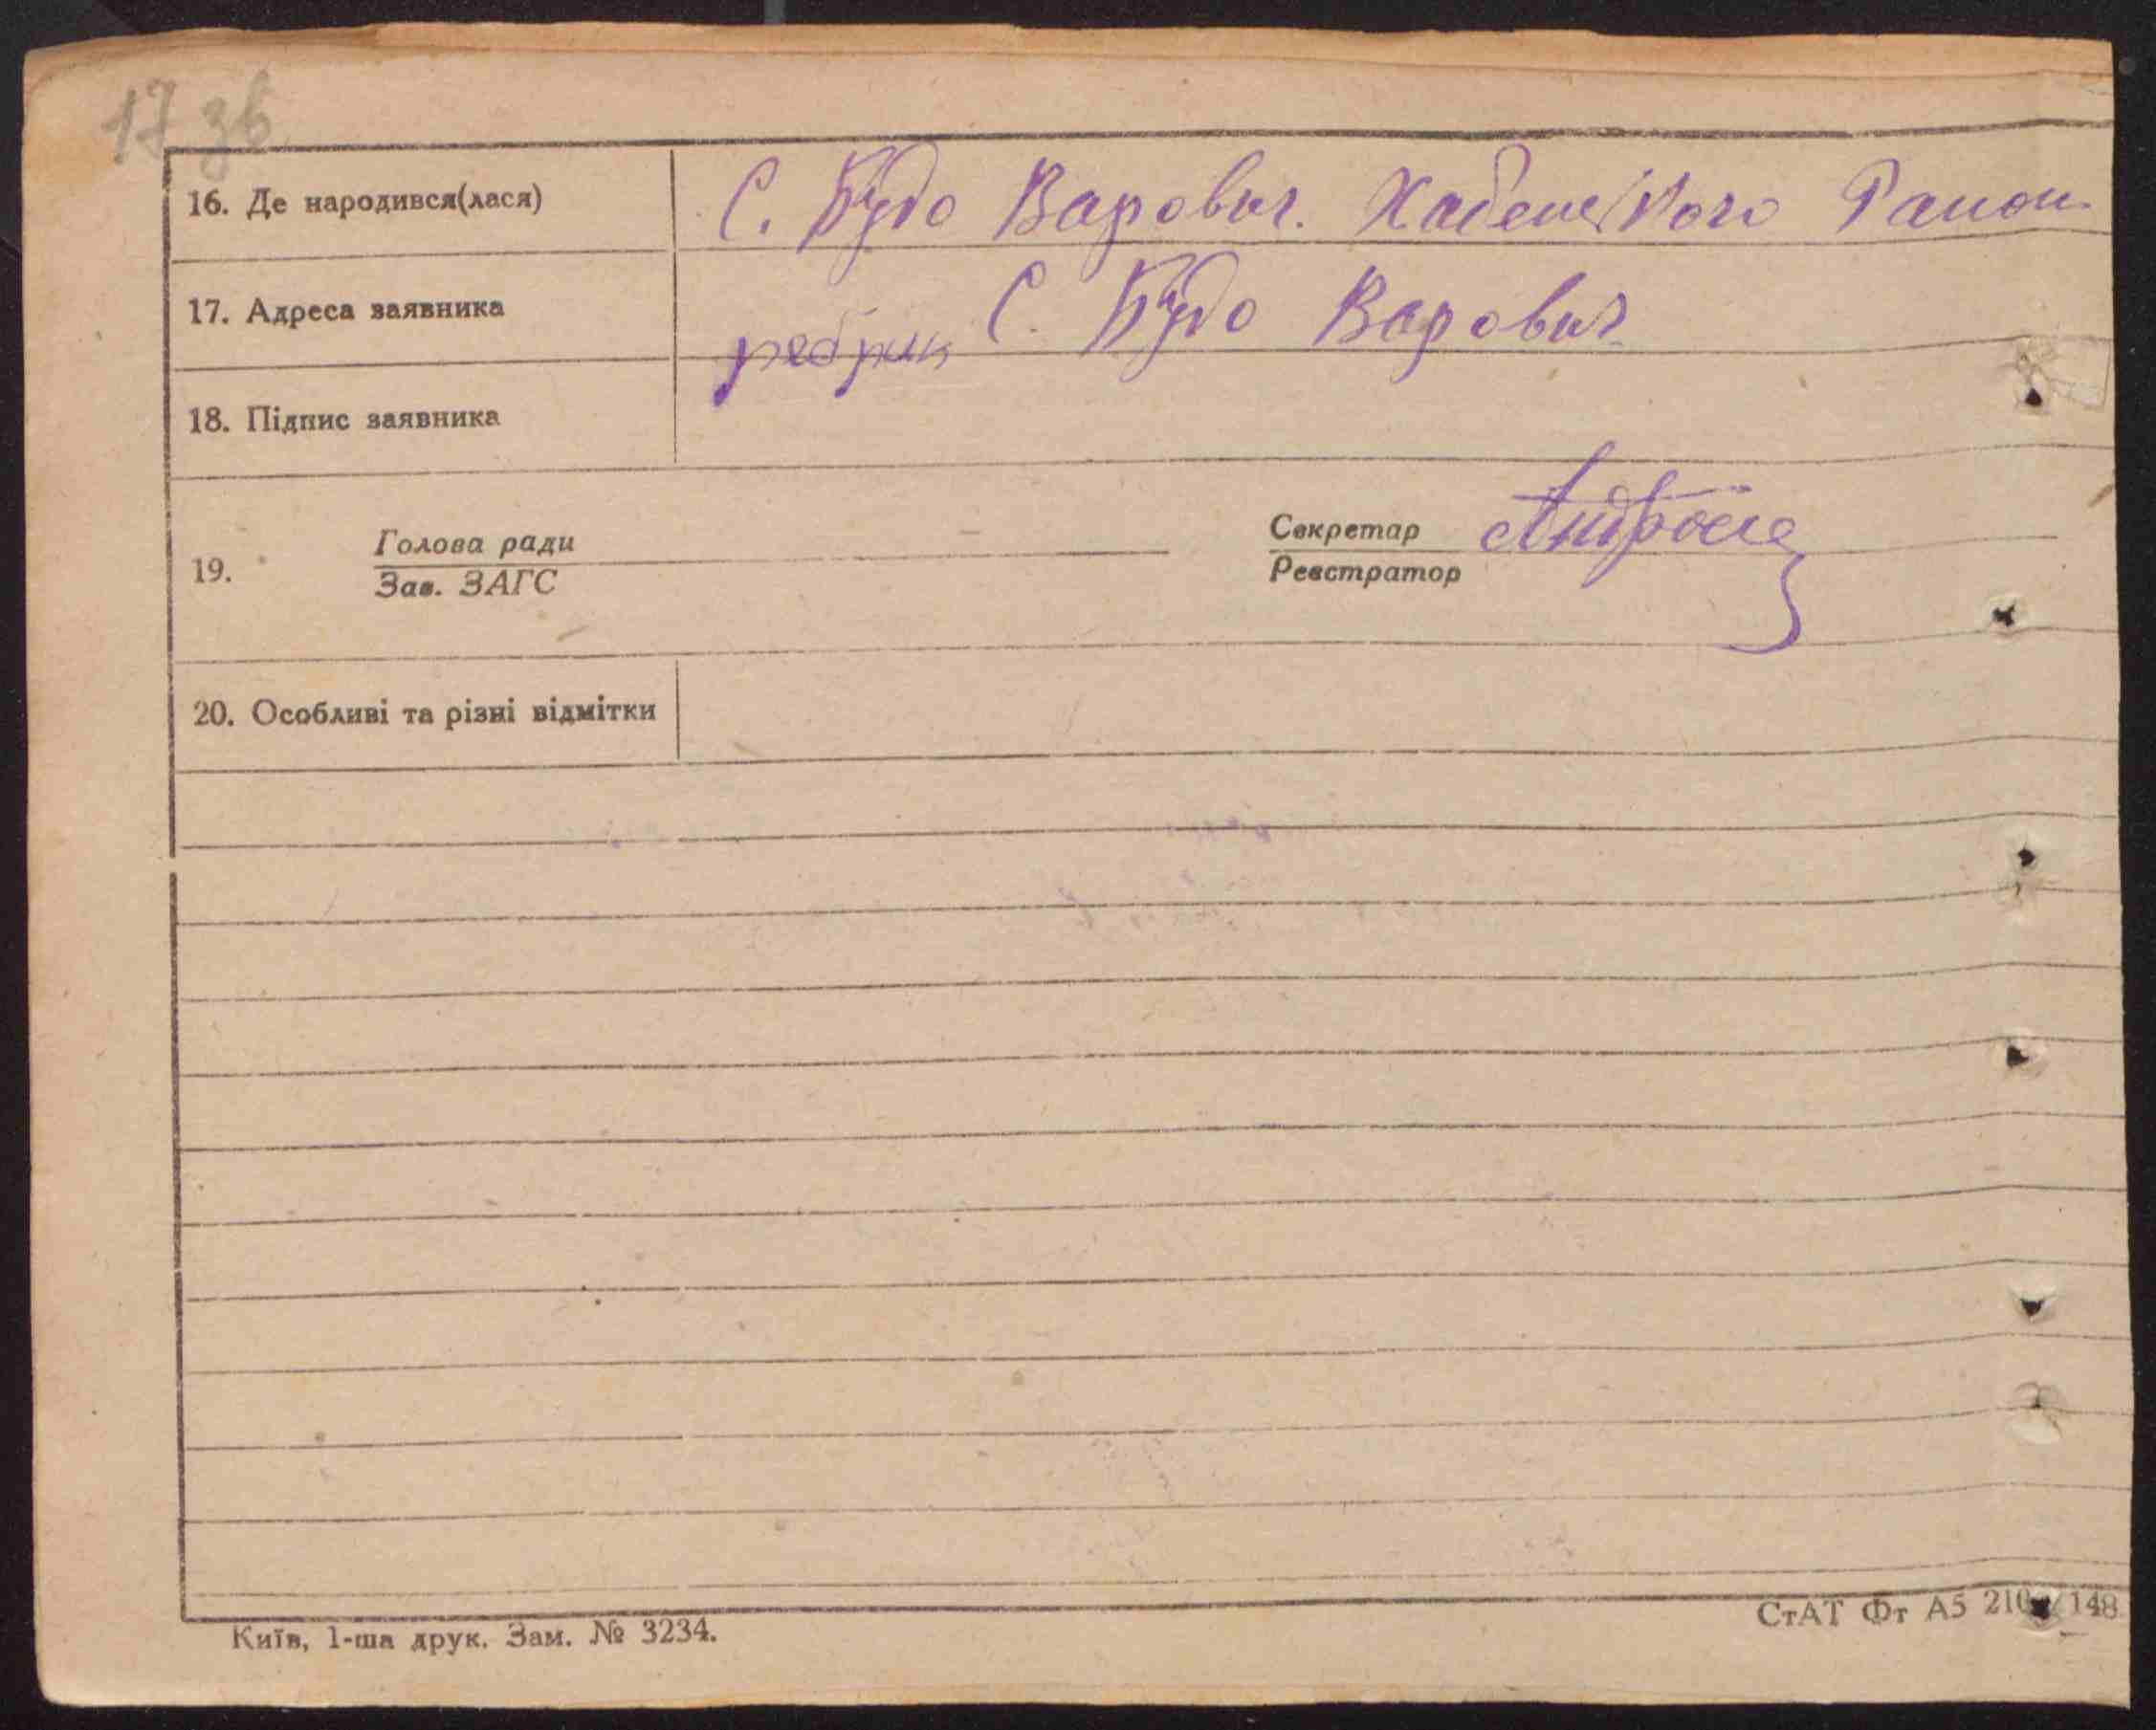 17 зв
16. Де народився(лася) С. Будо Варович. Хабенського Район
17. Адреса заявника С. Будо Варович
18. Підпис заявника
Голова ради Секретар
19.
Зав. ЗАГС Реєстратор
20. Особливі та різні відмітки
Київ, 1-ша друк. Зам. № 3234. СтАТ Фт А5 210 148